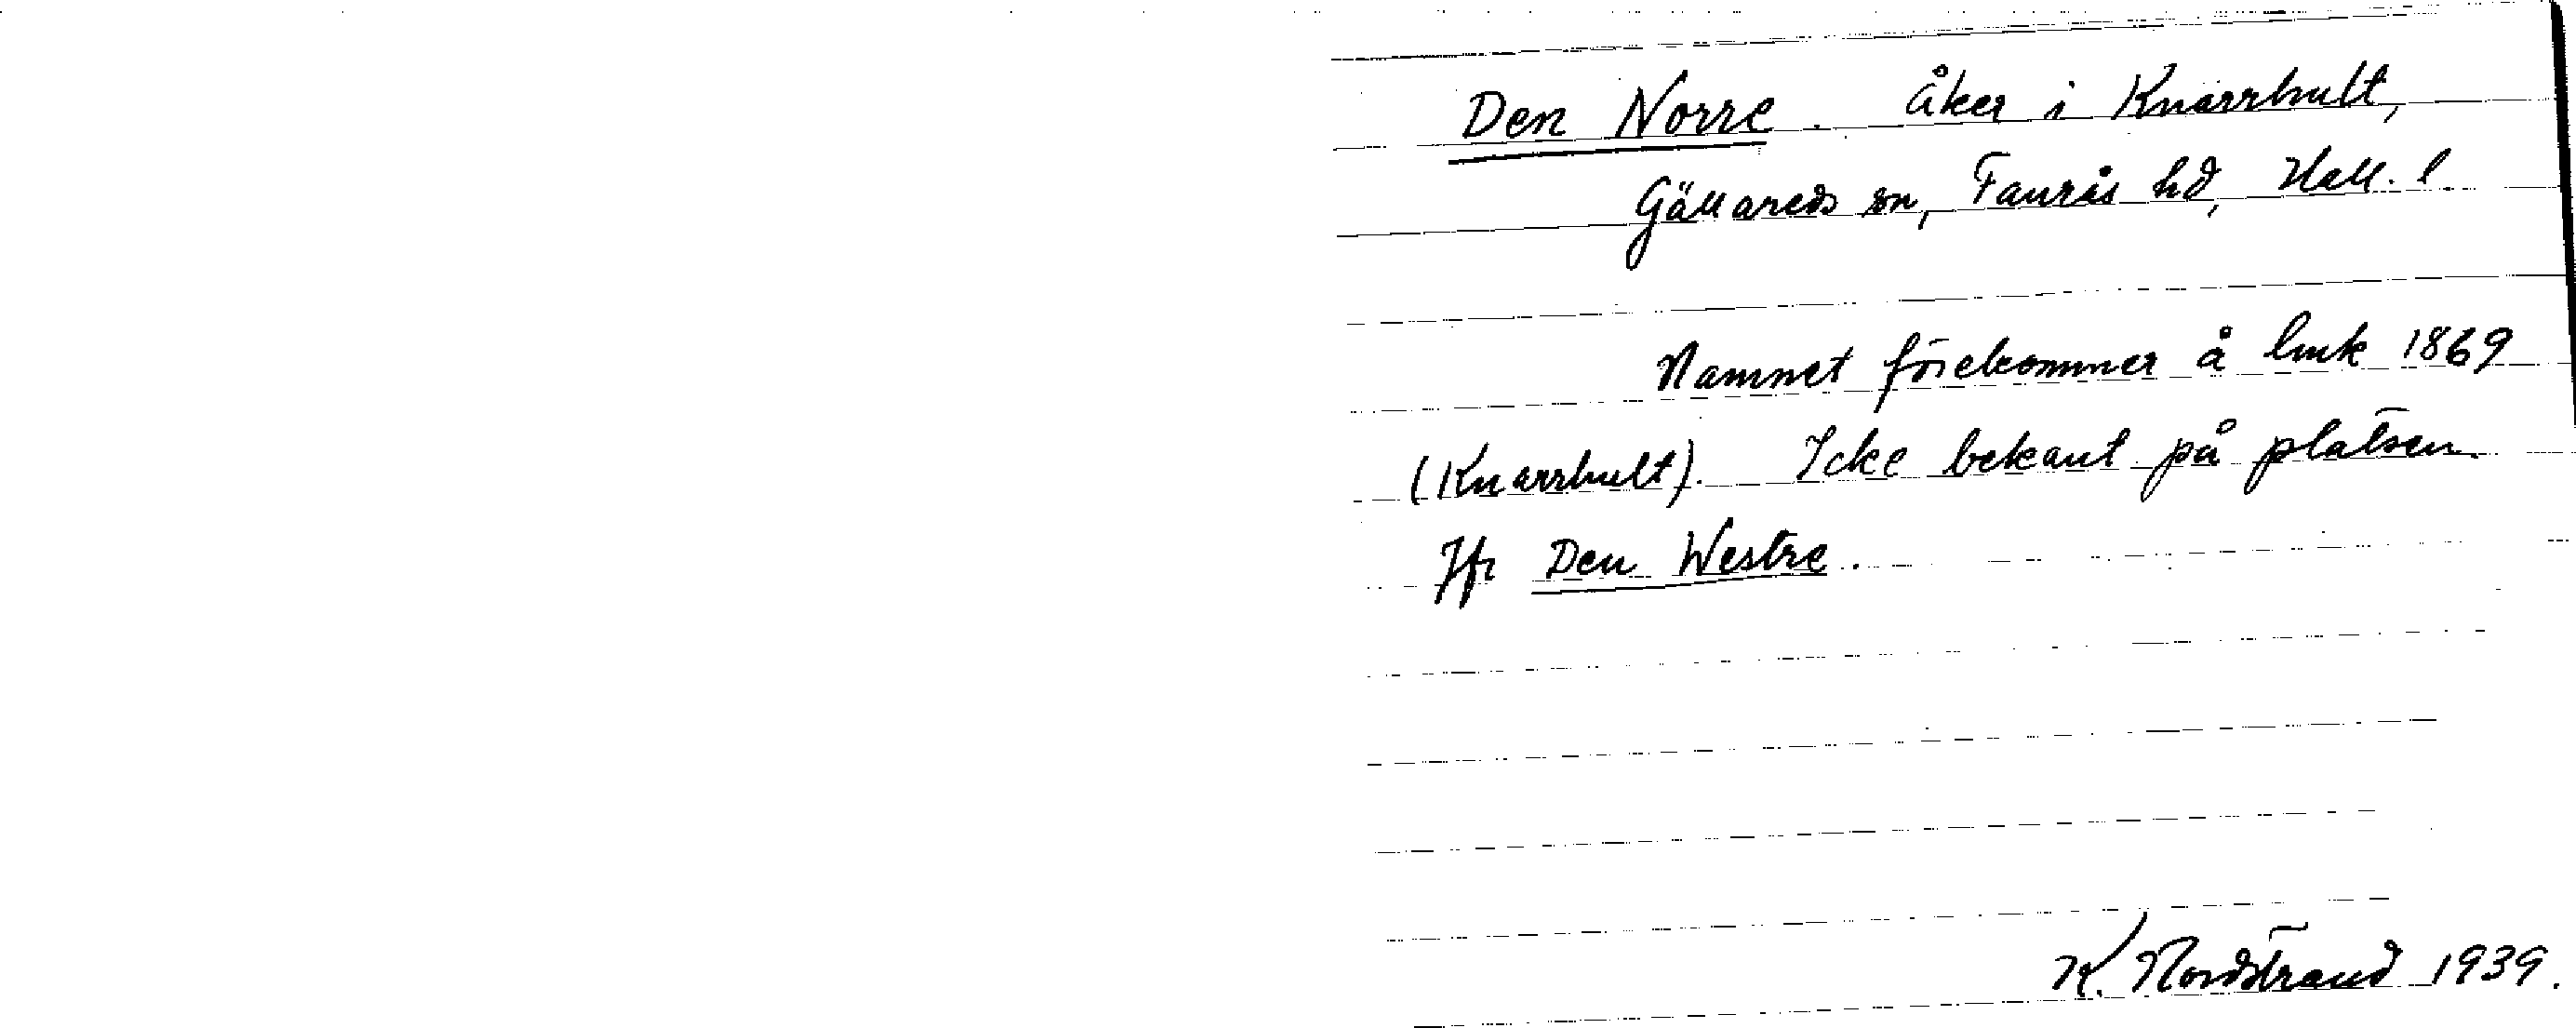 Den Norre. Åker i Knarrhult,
Gällareds sn, Faurås hd, Hall. l
Namnet förekommer å lmk 1869
(Knarrhult). Icke bekant på platsen.
Jfr Den Westre.
K. Nordstrand 1939.